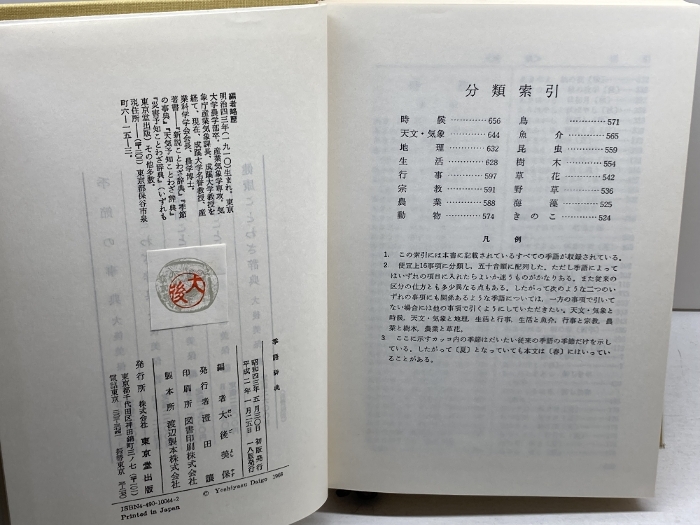 編者略歴
明治四三年(一九一〇)生まれ、東京
大学農学部卒。産業気象学専攻、気
象庁産業気象課長、成蹊大学教授を
経て、現在、成蹊大学名誉教授、産
業科学学会会長、農学博士。
著書―『新説ことわざ辞典』『季節
の事典』『天気予知ことわざ辞典』
『災害予知ことわざ辞典』(いずれも
東京堂出版)その他多数。
現住所―(〒二〇二)東京都保谷市泉
町六―一五―三。
大後
季語辞典
昭和四三年 五月三〇日 初版発行
平成 二年 一月二五日 一八版発行
編者 大後美保
発行者 澄田譲
印刷所 図書印刷株式会社
製本所 渡辺製本株式会社
発行所 株式会社 東京堂出版
東京都千代田区神田錦町三ノ七(〒一〇一)
ISBN4-490-10044-2
Printed in Japan
© Yoshiyasu Daigo 1968
分類索引
時候 656
天文・気象 644
地理 632
生活 628
行事 597
宗教 591
農業 588
動物 574
鳥 571
魚介 565
昆虫 559
樹木 554
草花 542
野草 536
海藻 525
きのこ 524
凡例
1. この索引には本書に記載されているすべての季語が収録されている。
2 便宜上16事項に分類し、五十音順に配列した。ただし季語によって
はいずれの項目に入れたらよいか迷うものがかなりある。また従来の
区分の仕方とも多少異なる点もある。したがって次のような二つのい
ずれの事項にも関係あるような季語については、一方の事項で引いて
ない場合には他の事項で引くようにしていただきたい。天文・気象と
時候、天文・気象と地理、生活と行事、生活と魚介、行事と宗教、農
業と樹木、農業と草花。
3 ここに示すカッコ内の季節はだいたい従来の季語の季節だけを示し
ている。したがって(夏)となっていても本文は(春)にはいってい
ることがある。